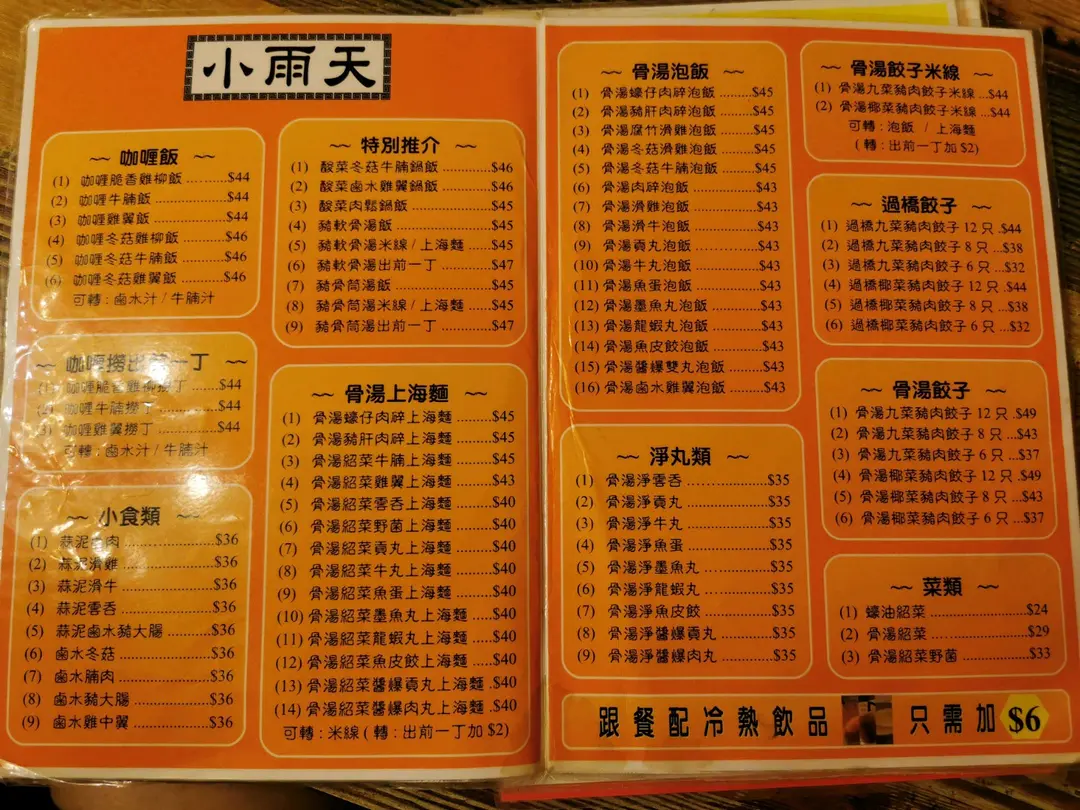 小雨天
咖喱飯
(1) 咖喱脆香雞柳飯 ...........$44
(2) 咖喱牛腩飯 ...........$44
(3) 咖喱雞翼飯 ...........$44
(4) 咖喱冬菇雞柳飯 ...........$46
(5) 咖喱冬菇牛腩飯 ...........$46
(6) 咖喱冬菇雞翼飯 ...........$46
可轉 : 鹵水汁 / 牛腩汁
咖喱撈出前一丁
(1) 咖喱脆香雞柳撈丁 .......$44
(2) 咖喱牛腩撈丁 .......$44
(3) 咖喱雞翼撈丁 .......$44
可轉 : 鹵水汁 / 牛腩汁
小食類
(1) 蒜泥肉 ...........$36
(2) 蒜泥滑雞 ...........$36
(3) 蒜泥滑牛 ...........$36
(4) 蒜泥雲吞 ...........$36
(5) 蒜泥鹵水豬大腸 ...........$36
(6) 鹵水冬菇 ...........$36
(7) 鹵水腩肉 ...........$36
(8) 鹵水豬大腸 ...........$36
(9) 鹵水雞中翼 ...........$36
特別推介
(1) 酸菜冬菇牛腩鍋飯 ........$46
(2) 酸菜鹵水雞翼鍋飯 ........$46
(3) 酸菜肉鬆鍋飯 ........$45
(4) 豬軟骨湯飯 ........$45
(5) 豬軟骨湯米線 / 上海麵 .....$45
(6) 豬軟骨湯出前一丁 ........$47
(7) 豬骨筒湯飯 ........$45
(8) 豬骨筒湯米線 / 上海麵 .....$45
(9) 豬骨筒湯出前一丁 ........$47
骨湯上海麵
(1) 骨湯蠔仔肉碎上海麵 ........$45
(2) 骨湯豬肝肉碎上海麵 ........$45
(3) 骨湯紹菜牛腩上海麵 ........$45
(4) 骨湯紹菜雞翼上海麵 ........$43
(5) 骨湯紹菜雲吞上海麵 ........$40
(6) 骨湯紹菜野菌上海麵 ........$40
(7) 骨湯紹菜貢丸上海麵 ........$40
(8) 骨湯紹菜牛丸上海麵 ........$40
(9) 骨湯紹菜魚蛋上海麵 ........$40
(10) 骨湯紹菜墨魚丸上海麵 .....$40
(11) 骨湯紹菜龍蝦丸上海麵 .....$40
(12) 骨湯紹菜魚皮餃上海麵 .....$40
(13) 骨湯紹菜醬爆貢丸上海麵 .$40
(14) 骨湯紹菜醬爆肉丸上海麵 .$40
可轉 : 米線 ( 轉 : 出前一丁加 $2)
骨湯泡飯
(1) 骨湯蠔仔肉碎泡飯 .........$45
(2) 骨湯豬肝肉碎泡飯 .........$45
(3) 骨湯腐竹滑雞泡飯 .........$45
(4) 骨湯冬菇滑雞泡飯 .........$45
(5) 骨湯冬菇牛腩泡飯 .........$45
(6) 骨湯肉碎泡飯 .........$43
(7) 骨湯滑雞泡飯 .........$43
(8) 骨湯滑牛泡飯 .........$43
(9) 骨湯貢丸泡飯 .........$43
(10) 骨湯牛丸泡飯 .........$43
(11) 骨湯魚蛋泡飯 .........$43
(12) 骨湯墨魚丸泡飯 .........$43
(13) 骨湯龍蝦丸泡飯 .........$43
(14) 骨湯魚皮餃泡飯 .........$43
(15) 骨湯醬爆雙丸泡飯 .........$43
(16) 骨湯鹵水雞翼泡飯 .........$43
淨丸類
(1) 骨湯淨雲吞 ...........$35
(2) 骨湯淨貢丸 ...........$35
(3) 骨湯淨牛丸 ...........$35
(4) 骨湯淨魚蛋 ...........$35
(5) 骨湯淨墨魚丸 ...........$35
(6) 骨湯淨龍蝦丸 ...........$35
(7) 骨湯淨魚皮餃 ...........$35
(8) 骨湯淨醬爆貢丸 ...........$35
(9) 骨湯淨醬爆肉丸 ...........$35
骨湯餃子米線
(1) 骨湯九菜豬肉餃子米線 ...$44
(2) 骨湯椰菜豬肉餃子米線 ...$44
可轉 : 泡飯 / 上海麵
( 轉 : 出前一丁加 $2)
過橋餃子
(1) 過橋九菜豬肉餃子 12 只 .$44
(2) 過橋九菜豬肉餃子 8 只 ...$38
(3) 過橋九菜豬肉餃子 6 只 ...$32
(4) 過橋椰菜豬肉餃子 12 只 .$44
(5) 過橋椰菜豬肉餃子 8 只 ...$38
(6) 過橋椰菜豬肉餃子 6 只 ...$32
骨湯餃子
(1) 骨湯九菜豬肉餃子 12 只 .$49
(2) 骨湯九菜豬肉餃子 8 只 ...$43
(3) 骨湯九菜豬肉餃子 6 只 ...$37
(4) 骨湯椰菜豬肉餃子 12 只 .$49
(5) 骨湯椰菜豬肉餃子 8 只 ...$43
(6) 骨湯椰菜豬肉餃子 6 只 ...$37
菜類
(1) 蠔油紹菜 ...........$24
(2) 骨湯紹菜 ...........$29
(3) 骨湯紹菜野菌 ...........$33
跟餐配冷熱飲品 只需加 $6